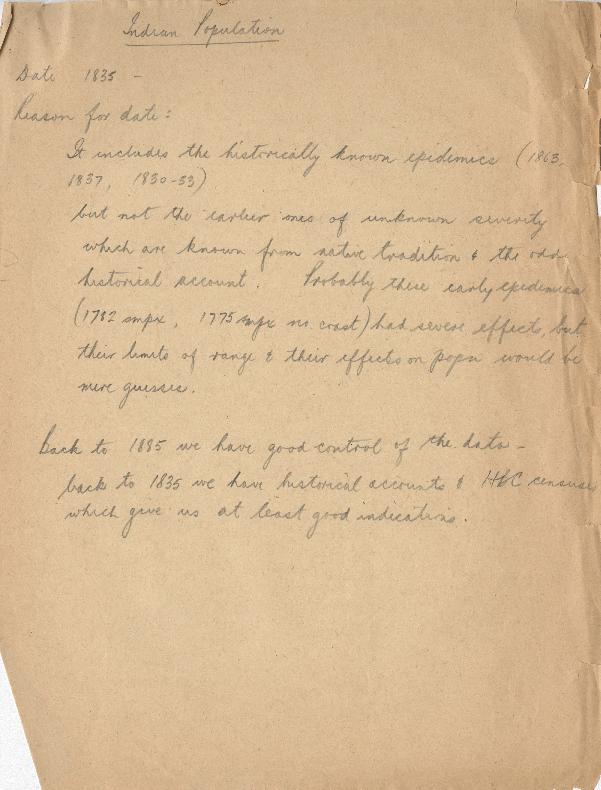 Indian Population
Date 1835 -
Reason for date:
It includes the historically known epidemics (1863,
1837, 1830-33)
but not the earlier ones of unknown severity
which are known from native tradition & the odd
historical account. Probably these early epidemics
(1782 smpx, 1775 smpx no. coast) had severe effects, but
their limits of range & their effects on popn would be
mere guesses.
Back to 1885 we have good control of the data -
back to 1835 we have historical accounts & HBC censuses
which give us at least good indications.